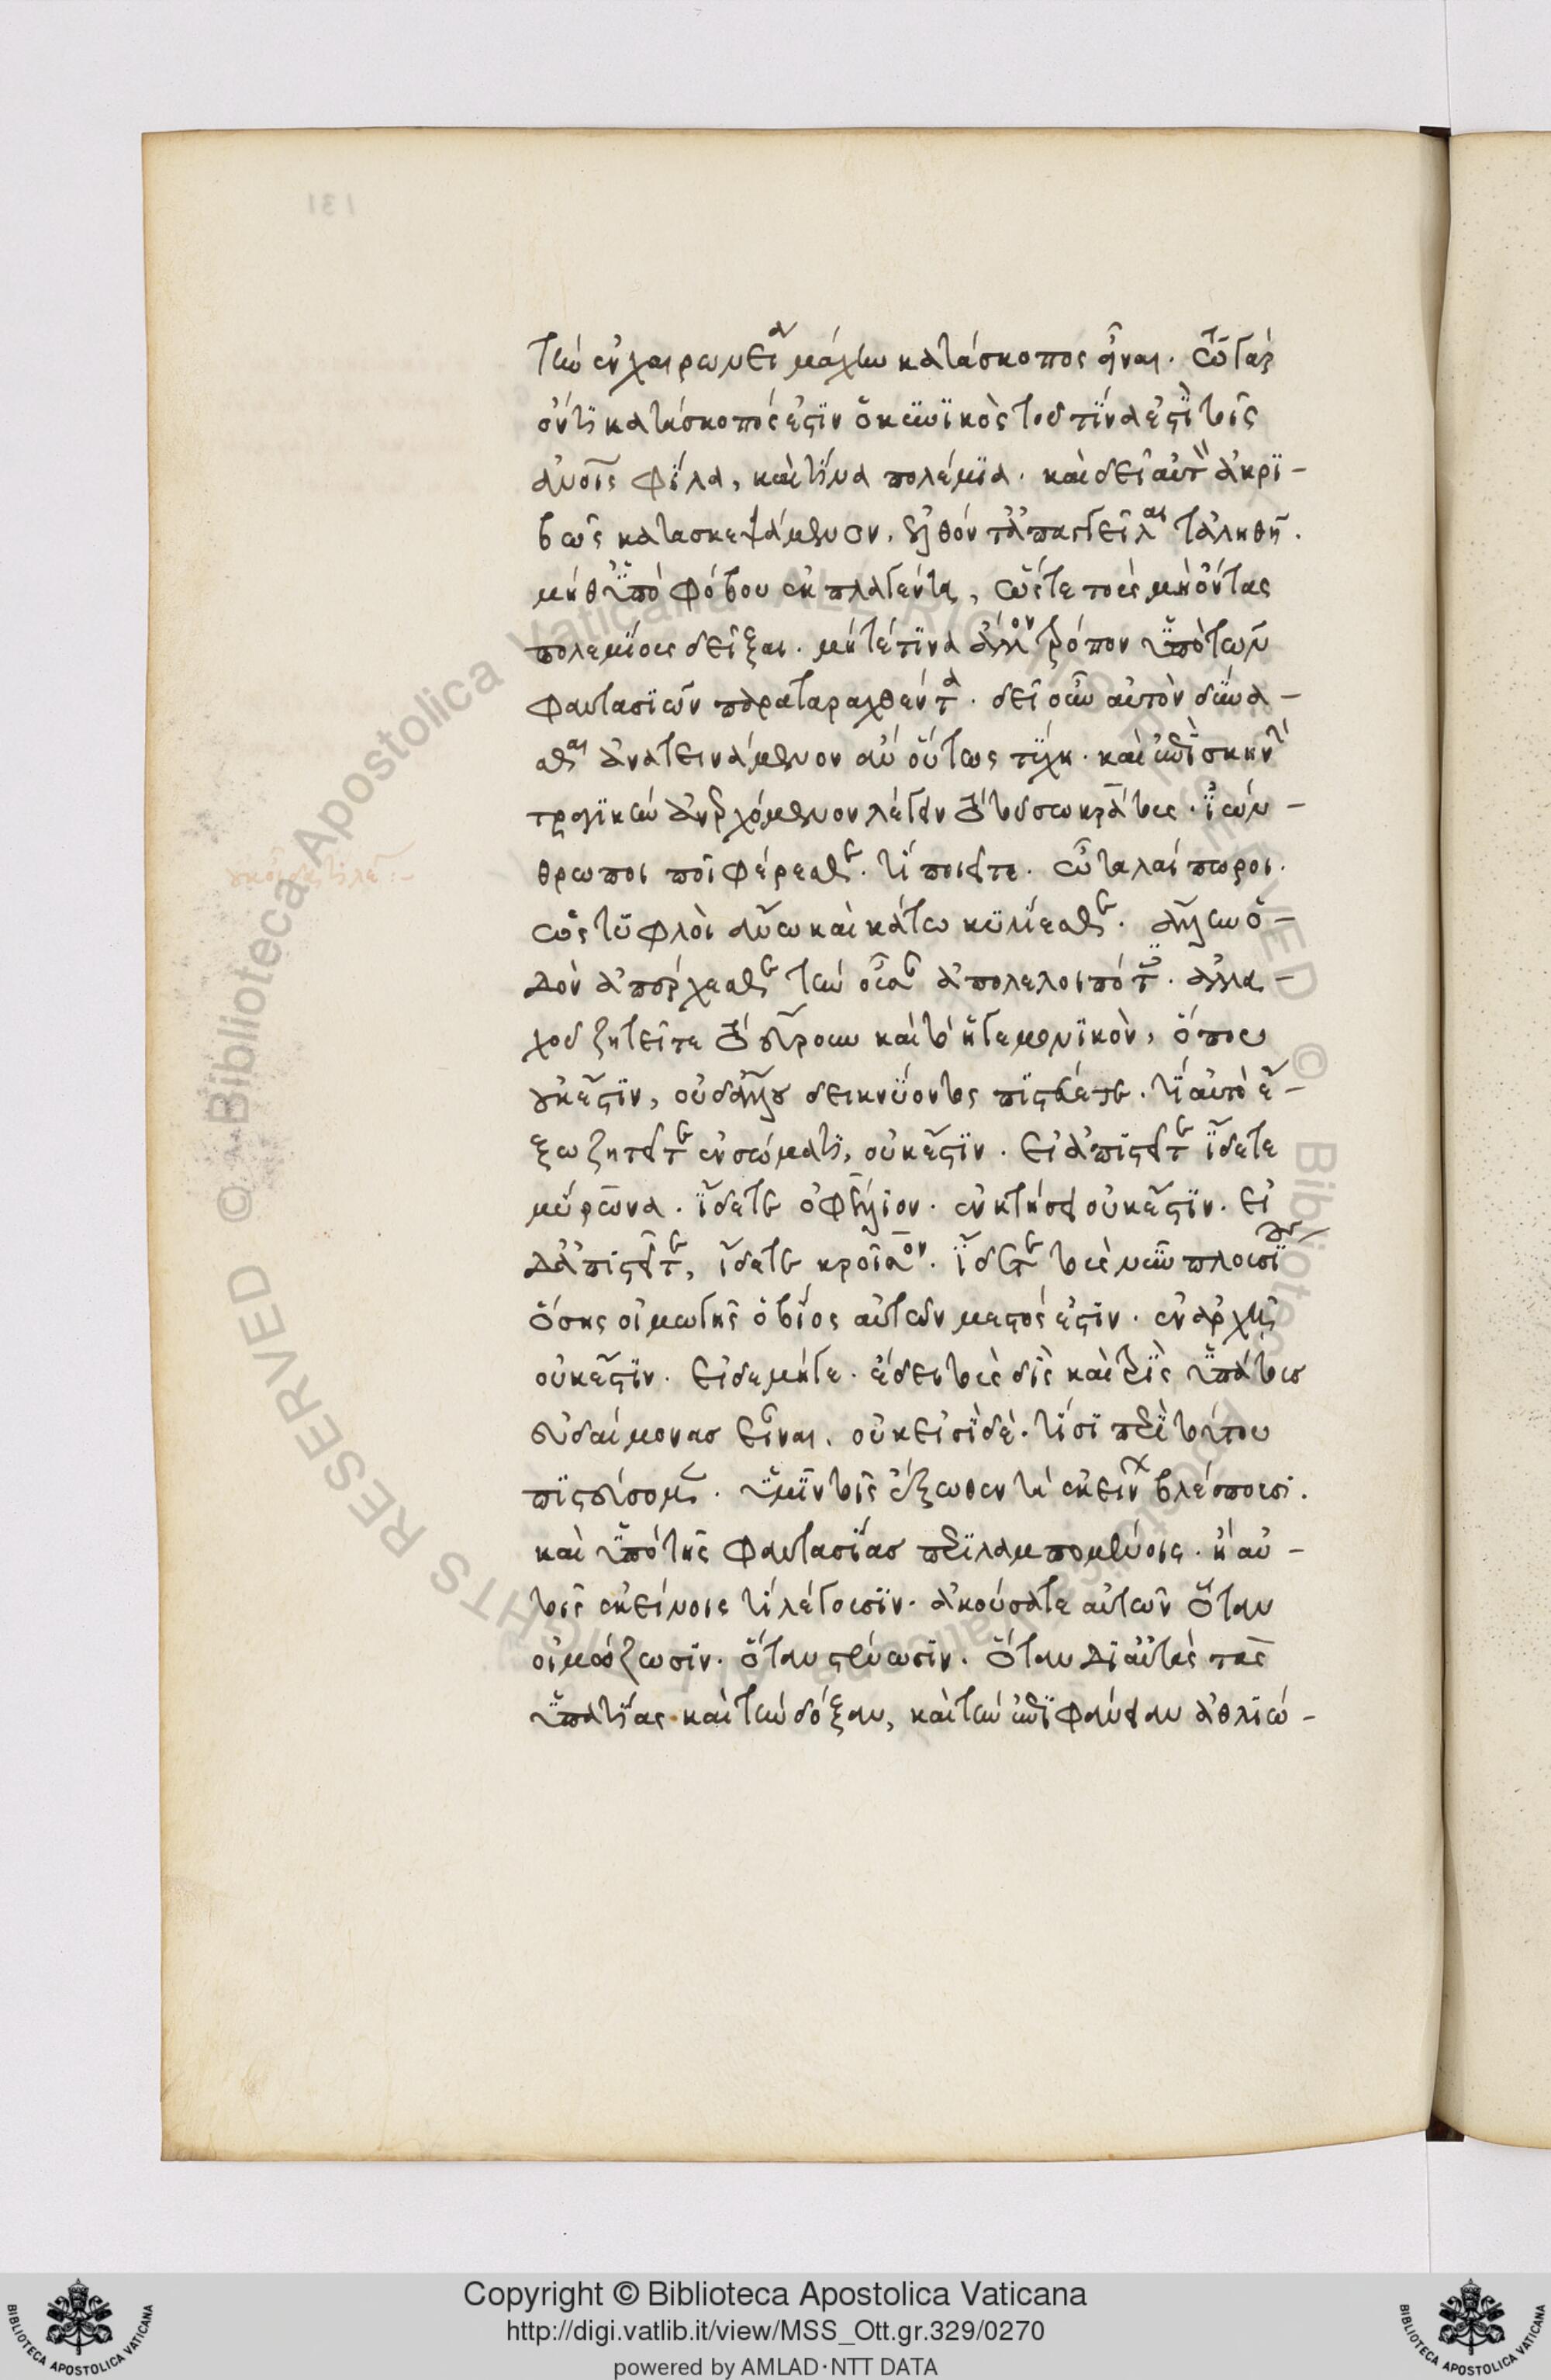 131
τὴν ἐν χαιρωνεία μάχην κατάσκοπος εἶναι. τῶ γὰρ
ὄντι κατάσκοπός ἐστιν ὁ κυνικὸς τοῦ τίνα ἐστὶ τοῖς
ἀνοις φίλα, καὶ τίνα πολέμια. καὶ δεῖ αὐτὸν ἀκρι-
βῶς κατασκεψάμενον, ἐλθόντ' ἀπαγγεῖλαι τἀληθῆ.
μήθ' ὑπὸ φόβου ἐκπλαγέντα, ὥστε τοὺς μὴ ὄντας
πολεμίους δεῖξαι. μήτε τινὰ ἄλλον τρόπον ὑπὸ τῶν
φαντασιῶν παραταραχθέντα. δεῖ οὖν αὐτὸν δύνα-
σθαι ἀνατεινάμενον ἂν οὕτως τύχη. καὶ ἐπὶ σκηνὴν
τραγικὴν ἀνερχόμενον λέγειν τὸ τοῦ σωκράτους. ἰὼ ἄν-
θρωποι ποῖ φέρεσθε. τί ποιεῖτε. ὦ ταλαίπωροι.
ὡς τυφλοὶ ἄνω καὶ κάτω κυλίεσθε. ἄλλην ὁ-
δὸν ἀπέρχεσθε τὴν οὖσαν ἀπολελοιπότες. ἀλλα-
χοῦ ζητεῖτε τὸ εὔρουν καὶ τὸ ἡγεμονικὸν, ὅπου
οὐκ ἔστιν, οὐδ' ἄλλου δεικνύοντος πιστεύετε. τί αὐτὸ ἔ-
ξω ζητεῖτε ἐν σώματι, οὐκ ἔστιν. εἰ ἀπιστεῖτε ἴδετε
μύρωνα. ἴδετε ὀφέλλιον. ἐν κτήσει οὐκ ἔστιν. εἰ
δ' ἀπιστεῖτε, ἴδετε κροῖσον. ἴδετε τοὺς νῦν πλουσίους
ὅσης οἰμωγῆς ὁ βίος αὐτῶν μεστός ἐστιν. ἐν ἀρχῆ
οὐκ ἔστιν. εἰ δὲ μή γε. ἔδει τοὺς δὶς καὶ τρὶς ὑπάτους
εὐδαίμονας εἶναι. οὐκ εἰσὶ δέ. τίσι περὶ τούτου
πιστεύσομεν. ὑμῖν τοῖς ἔξωθεν τὰ ἐκείνων βλέπουσι.
καὶ ὑπὸ τῆς φαντασίας περιλαμπομένοις. ἢ αὐ-
τοῖς ἐκείνοις τί λέγουσιν. ἀκούσατε αὐτῶν ὅταν
οἰμώζωσιν. ὅταν στένωσιν. ὅταν δι' αὐτὰς τὰς
ὑπατίας καὶ τὴν δόξαν, καὶ τὴν ἐπιφάνειαν ἀθλιώ-
Copyright © Biblioteca Apostolica Vaticana
http://digi.vatlib.it/view/MSS_Ott.gr.329/0270
powered by AMLAD·NTT DATA